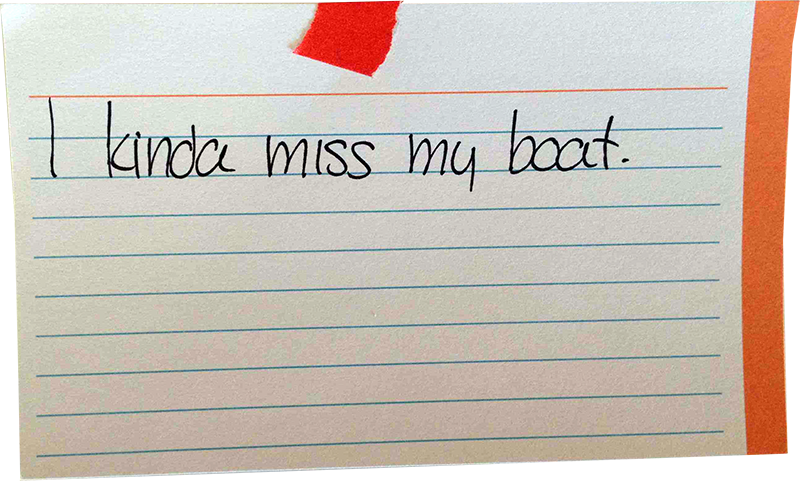 I kinda miss my boat.